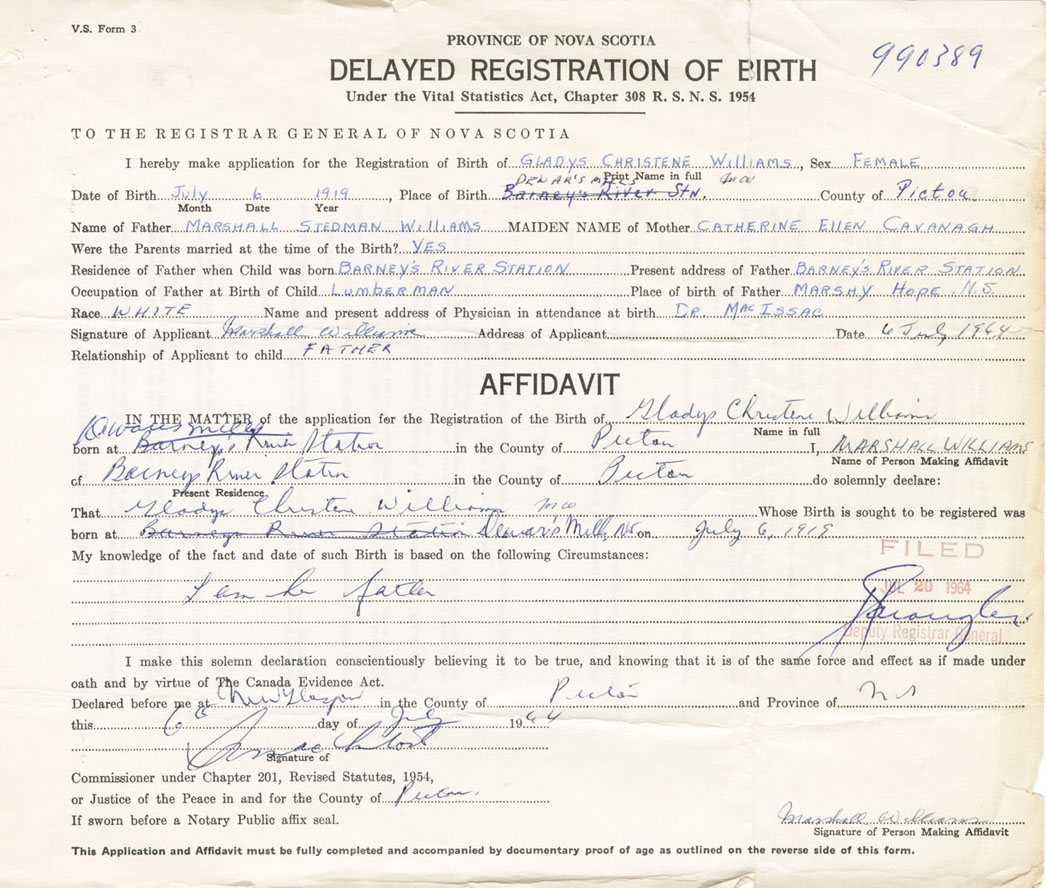 V.S. Form 3
990389
PROVINCE OF NOVA SCOTIA
DELAYED REGISTRATION OF BIRTH
Under the Vital Statistics Act, Chapter 308 R. S. N. S. 1954
TO THE REGISTRAR GENERAL OF NOVA SCOTIA
I hereby make application for the Registration of Birth of GLADYS CHRISTENE WILLIAMS, Sex FEMALE
DEWAR'S MILLS Print Name in full MW
Date of Birth July 6 1919, Place of Birth Barney's River Stn. County of Pictou
Month Date Year
Name of Father MARSHALL STEDMAN WILLIAMS MAIDEN NAME of Mother CATHERINE EllEN CAVANAGH
Were the Parents married at the time of the Birth? YES
Residence of Father when Child was born BARNEY'S RIVER STATION Present address of Father BARNEY'S RIVER STATION
Occupation of Father at Birth of Child LUMBERMAN Place of birth of Father MARSHY HOPE N.S
Race WHITE Name and present address of Physician in attendance at birth DR. MACISSAC
Signature of Applicant Marshall Williams Address of Applicant Date 6 July 1964
Relationship of Applicant to child FATHER
AFFIDAVIT
IN THE MATTER of the application for the Registration of the Birth of Gladys Christene Williams
Mills Name in full
born at Barney's River Station in the County of Pictou I, MARSHALL WILLIAMS
Name of Person Making Affidavit
of Barneys River Station in the County of Pictou do solemnly declare:
Present Residence
That Gladys Christene Williams MW Whose Birth is sought to be registered was
born at Barneys River Station Dewar's Mills, NS on July 6, 1919
My knowledge of the fact and date of such Birth is based on the following Circumstances:
FILED
I am her father
JUL 20 1964
Deputy Registrar General
I make this solemn declaration conscientiously believing it to be true, and knowing that it is of the same force and effect as if made under
oath and by virtue of The Canada Evidence Act.
Declared before me at New Glasgow in the County of Pictou and Province of NS
this 6 day of July 1964
Signature of
Commissioner under Chapter 201, Revised Statutes, 1954,
or Justice of the Peace in and for the County of Pictou.
If sworn before a Notary Public affix seal.
Marshall Williams
Signature of Person Making Affidavit
This Application and Affidavit must be fully completed and accompanied by documentary proof of age as outlined on the reverse side of this form.